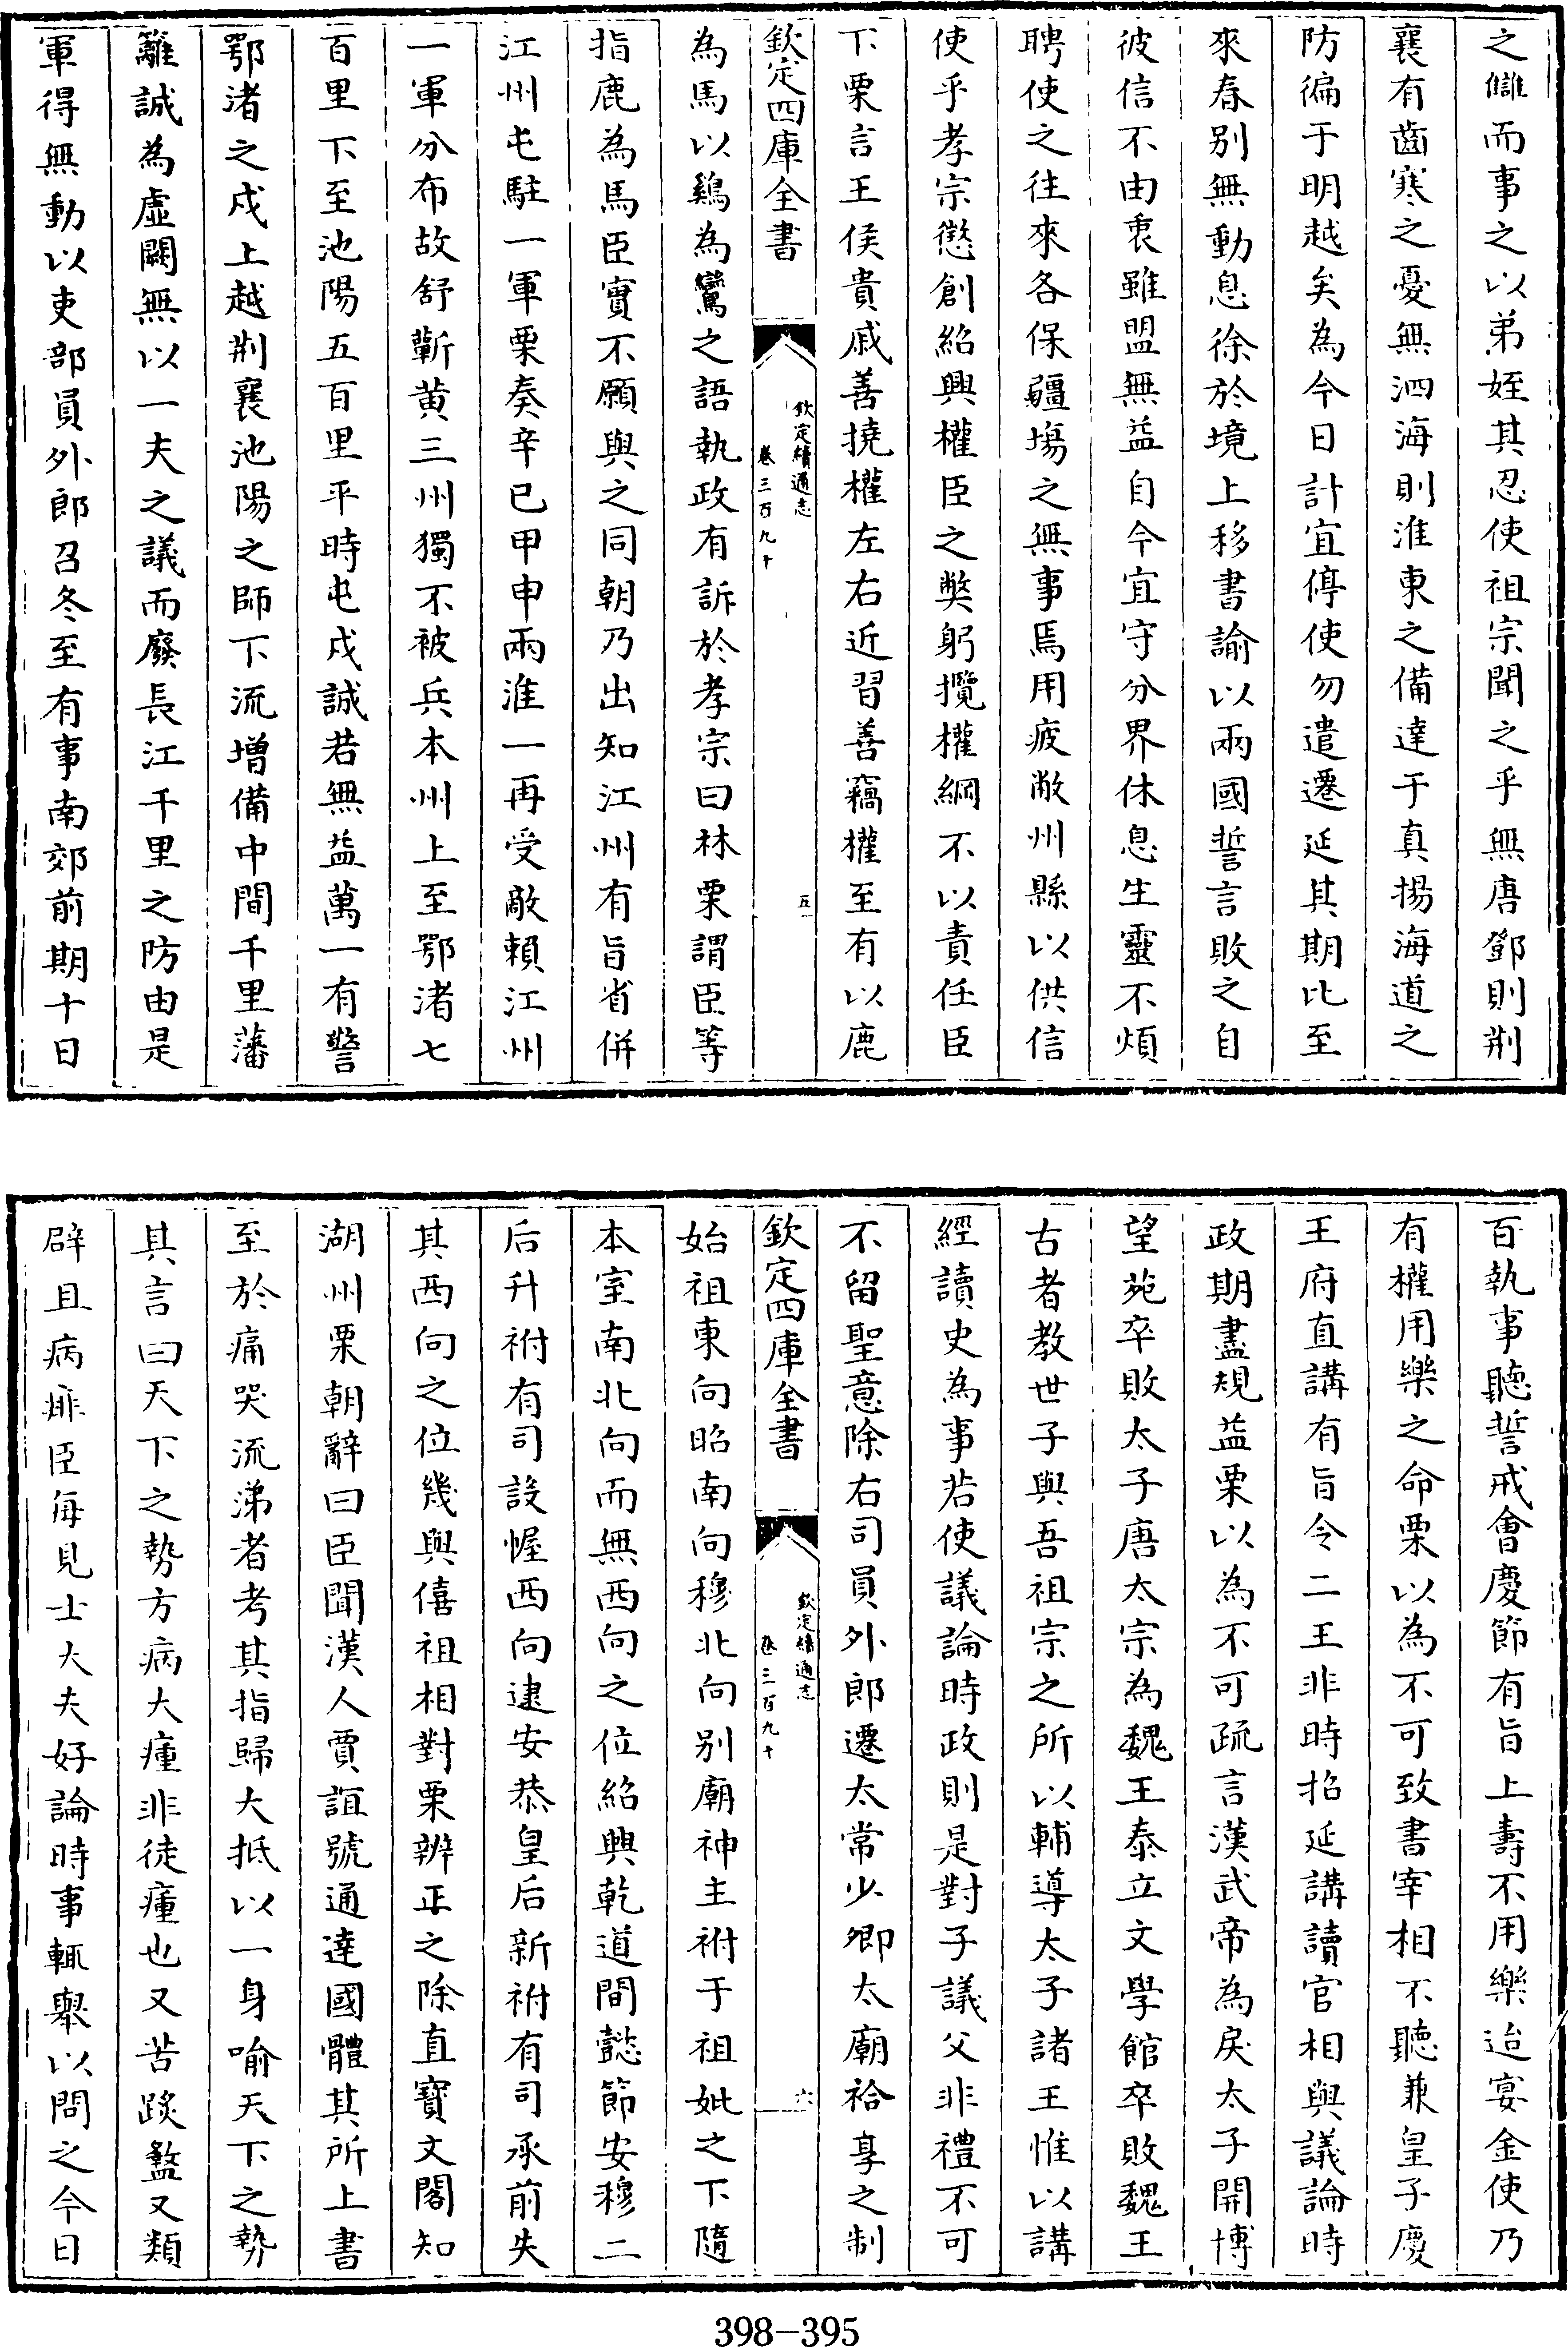 之讎而事之以弟姪其忍使祖宗聞之乎無唐鄧則荆
襄有齒寒之憂無泗海則淮東之備達于真揚海道之
防徧于明越矣為今日計宜停使勿遣遷延其期比至
來春别無動息徐於境上移書諭以兩國誓言敗之自
彼信不由衷雖盟無益自今宜守分界休息生靈不煩
聘使之往來各保疆埸之無事焉用疲敝州縣以供信
使乎孝宗懲創紹興權臣之弊躬攬權綱不以責任臣
下栗言王侯貴戚善撓權左右近習善竊權至有以鹿
欽定四庫全書
欽定續通志
卷三百九十
五
為馬以鷄為鸞之語執政有訴於孝宗曰林栗謂臣等
指鹿為馬臣實不願與之同朝乃出知江州有旨省併
江州屯駐一軍栗奏辛已甲申兩淮一再受敵賴江州
一軍分布故舒蘄黄三州獨不被兵本州上至鄂渚七
百里下至池陽五百里平時屯戍誠若無益萬一有警
鄂渚之戍上越荆襄池陽之師下流增備中間千里藩
籬誠為虛闕無以一夫之議而廢長江千里之防由是
軍得無動以吏部員外郎召冬至有事南郊前期十日
百執事聽誓戒會慶節有旨上壽不用樂迨宴金使乃
有權用樂之命栗以為不可致書宰相不聽兼皇子慶
王府直講有旨令二王非時招延講讀官相與議論時
政期盡規益栗以為不可疏言漢武帝為戾太子開博
望苑卒敗太子唐太宗為魏王泰立文學館卒敗魏王
古者教世子與吾祖宗之所以輔導太子諸王惟以講
經讀史為事若使議論時政則是對子議父非禮不可
不留聖意除右司員外郎遷太常少卿太廟祫享之制
欽定四庫全書
欽定續通志
卷三百九十
六
始祖東向昭南向穆北向别廟神主祔于祖妣之下隨
本室南北向而無西向之位紹興乾道間懿節安穆二
后升祔有司設幄西向逮安恭皇后新祔有司承前失
其西向之位幾與僖祖相對栗辨正之除直寶文閣知
湖州栗朝辭曰臣聞漢人賈誼號通達國體其所上書
至於痛哭流涕者考其指歸大抵以一身喻天下之勢
其言曰天下之勢方病大瘇非徒瘇也又苦䠫盭又類
辟且病痱臣每見士大夫好論時事輒舉以問之今日
398-395